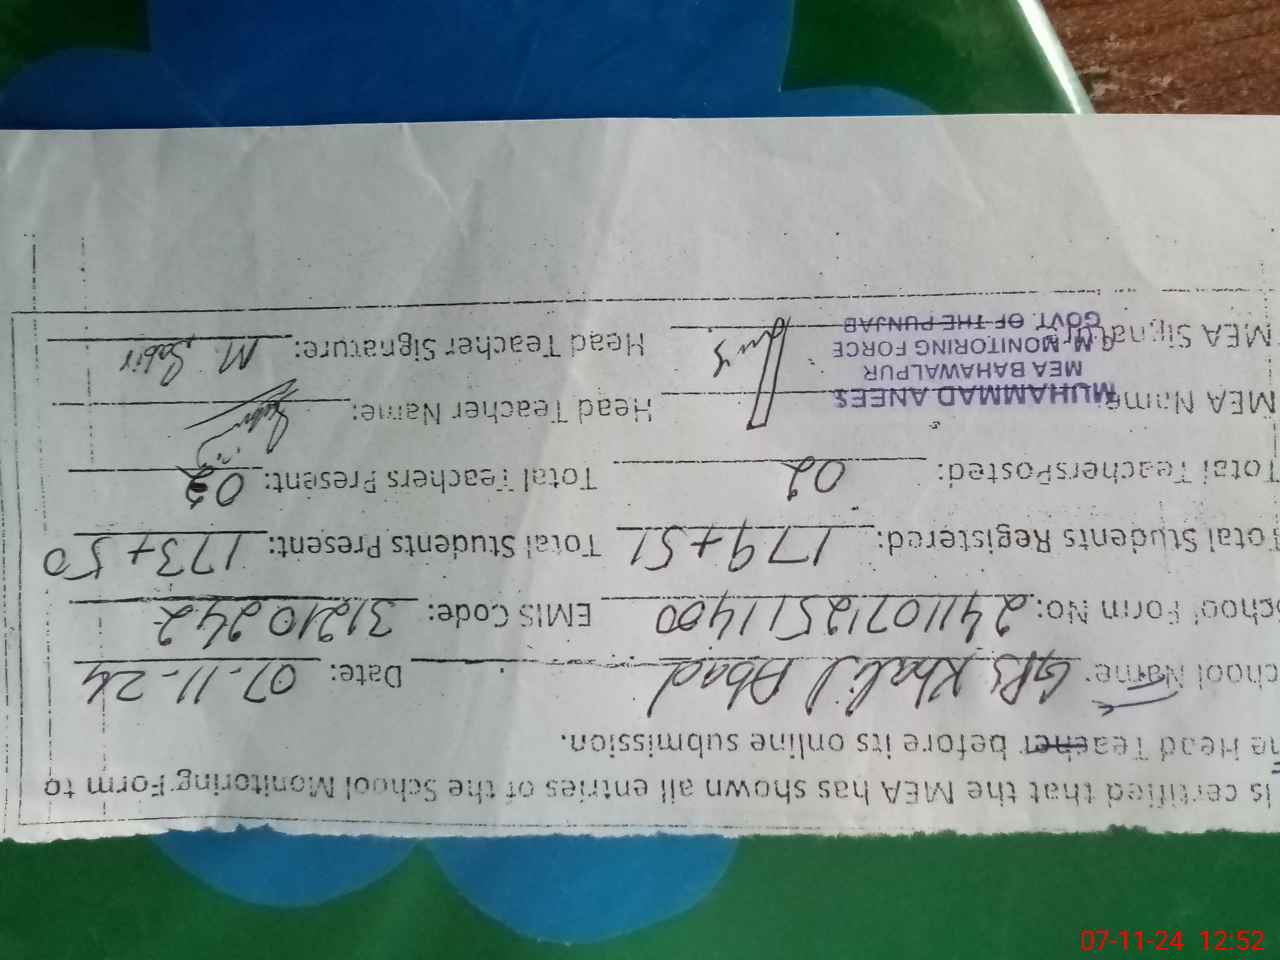 is certified that the MEA has shown all entries of the School Monitoring Form to
he Head Teacher before its online submission.
chool Name: GPS Khalil Abad Date: 07-11-24
School Form No: 2411071251 1400 EMIS Code: 31210242
Total Students Registered: 179+51 Total Students Present: 173+50
Total TeachersPosted: 02 Total Teachers Present: 02
MEA Name: MUHAMMAD ANEES Head Teacher Name:
MEA BAHAWALPUR
MEA Signature: MONITORING FORCE Head Teacher Signature: M. Sabir
GOVT. OF THE PUNJAB
07-11-24 12:52